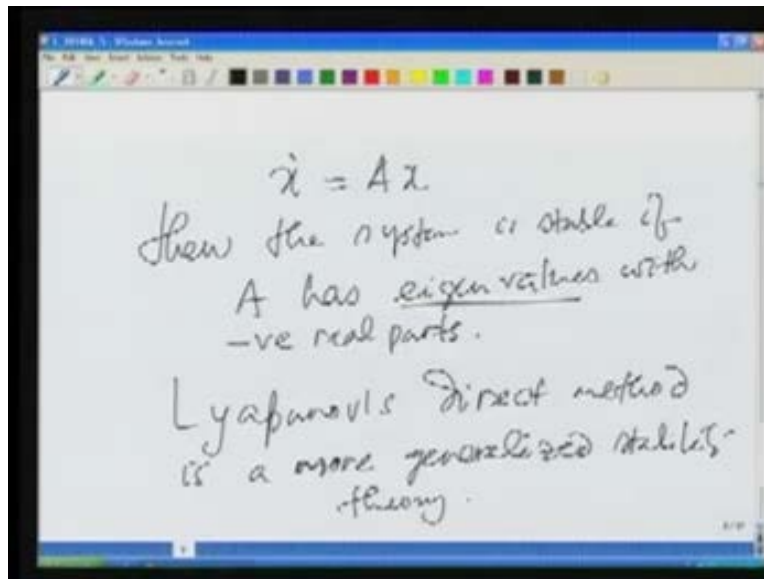 ẋ = Ax
then the system is stable if
A has eigenvalues with
-ve real parts.
Lyapunov's Direct method
is a more generalized stability
theory.